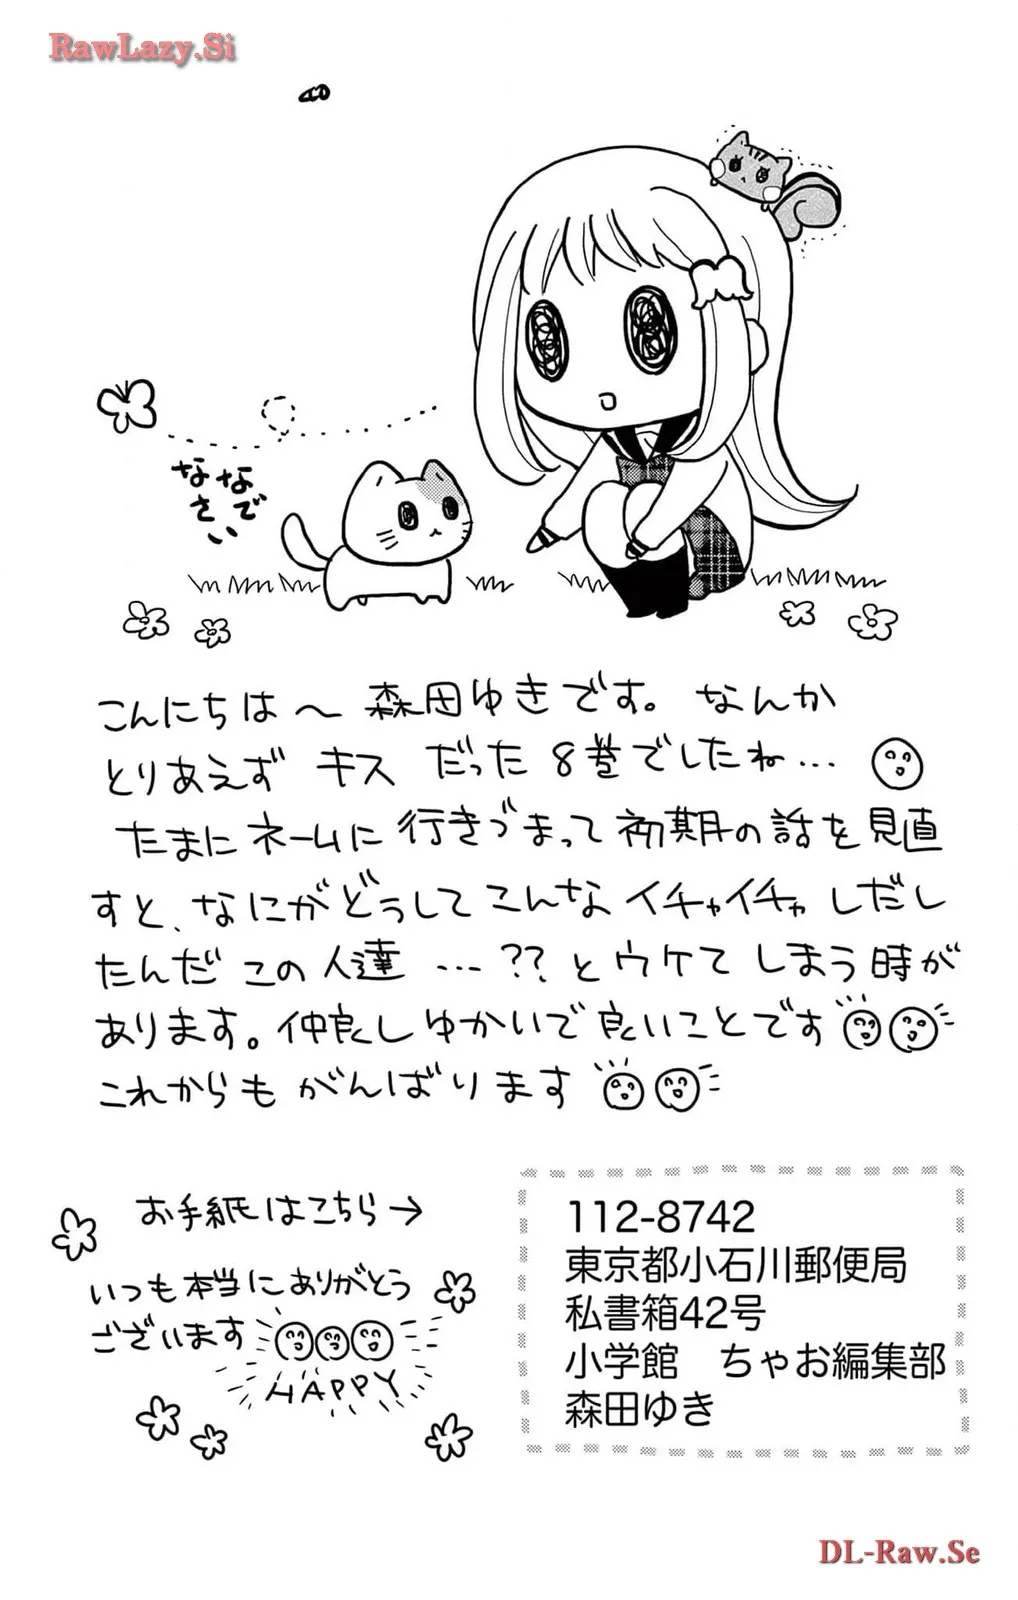 RawLazy.Si
なでなさい
こんにちは〜 森田ゆきです。なんか
とりあえず キス だった 8巻でしたね…
たまにネームに行きづまって初期の話を見直
すと、なにがどうしてこんなイチャイチャしだし
たんだこの人達 …?? とウケてしまう時が
あります。仲良しゆかいで良いことです
これからもがんばります
お手紙はこちら→
いつも本当にありがとう
ございます
HAPPY
112-8742
東京都小石川郵便局
私書箱42号
小学館 ちゃお編集部
森田ゆき
DL-Raw.Se